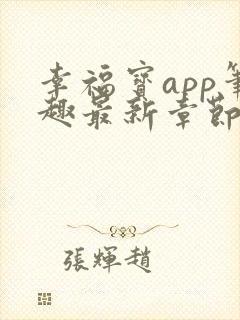 幸福寳app筆
趣最新章節
張輝趙